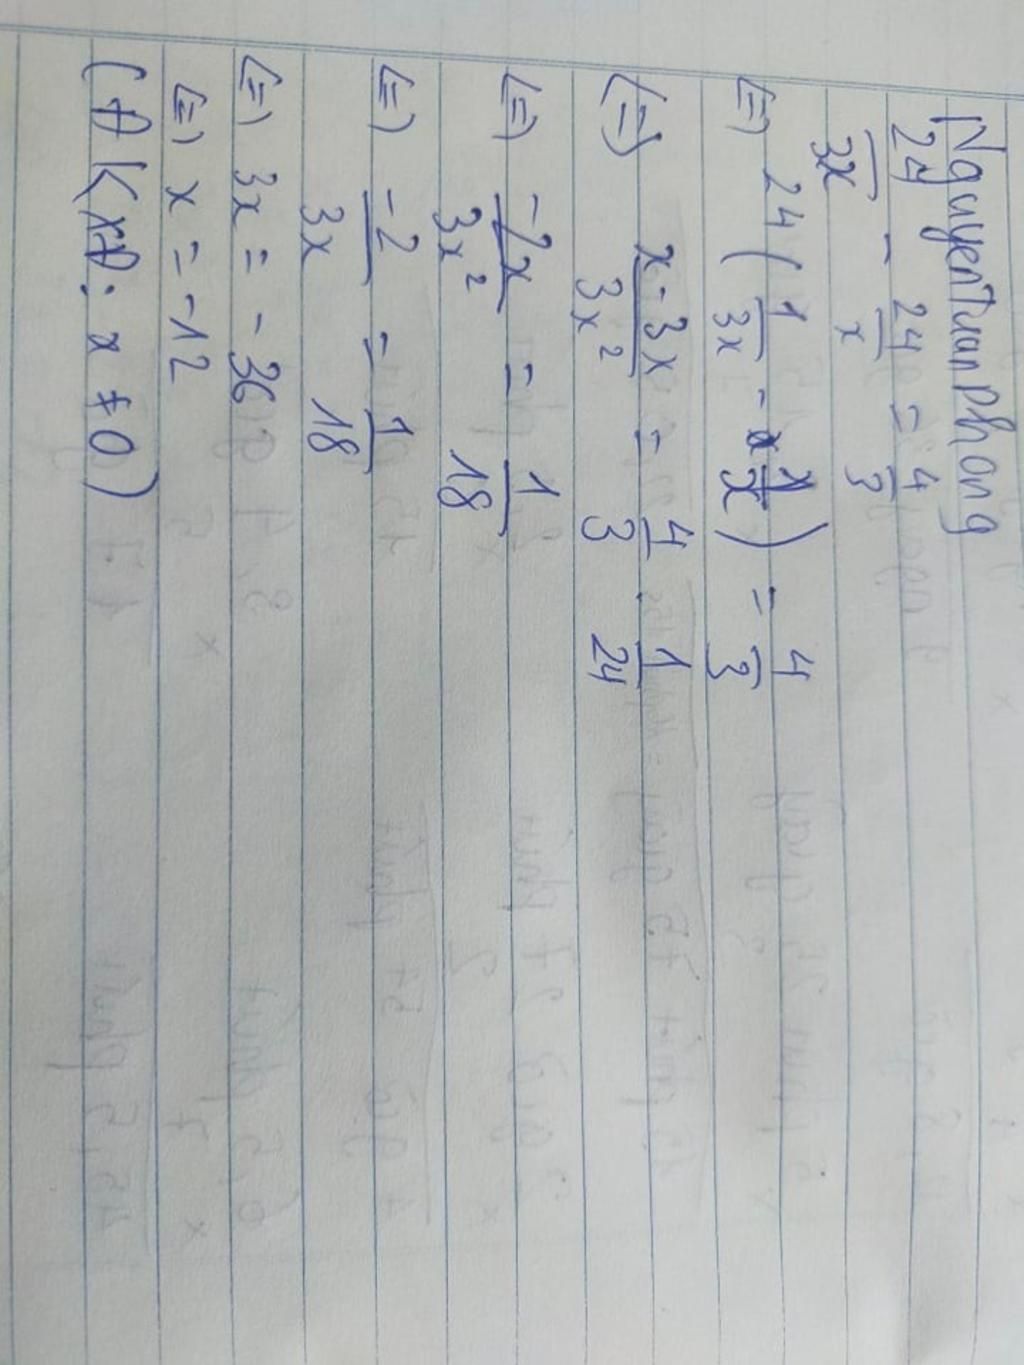 NguyenTuanPhong
24/3x - 24/x = 4/3
<=> 24 ( 1/3x - 1/x ) = 4/3
<=> x - 3x / 3x² = 4/3 . 1/24
<=> -2x / 3x² = 1/18
<=> -2 / 3x = 1/18
<=> 3x = -36
<=> x = -12
(ĐKXĐ: x ≠ 0)